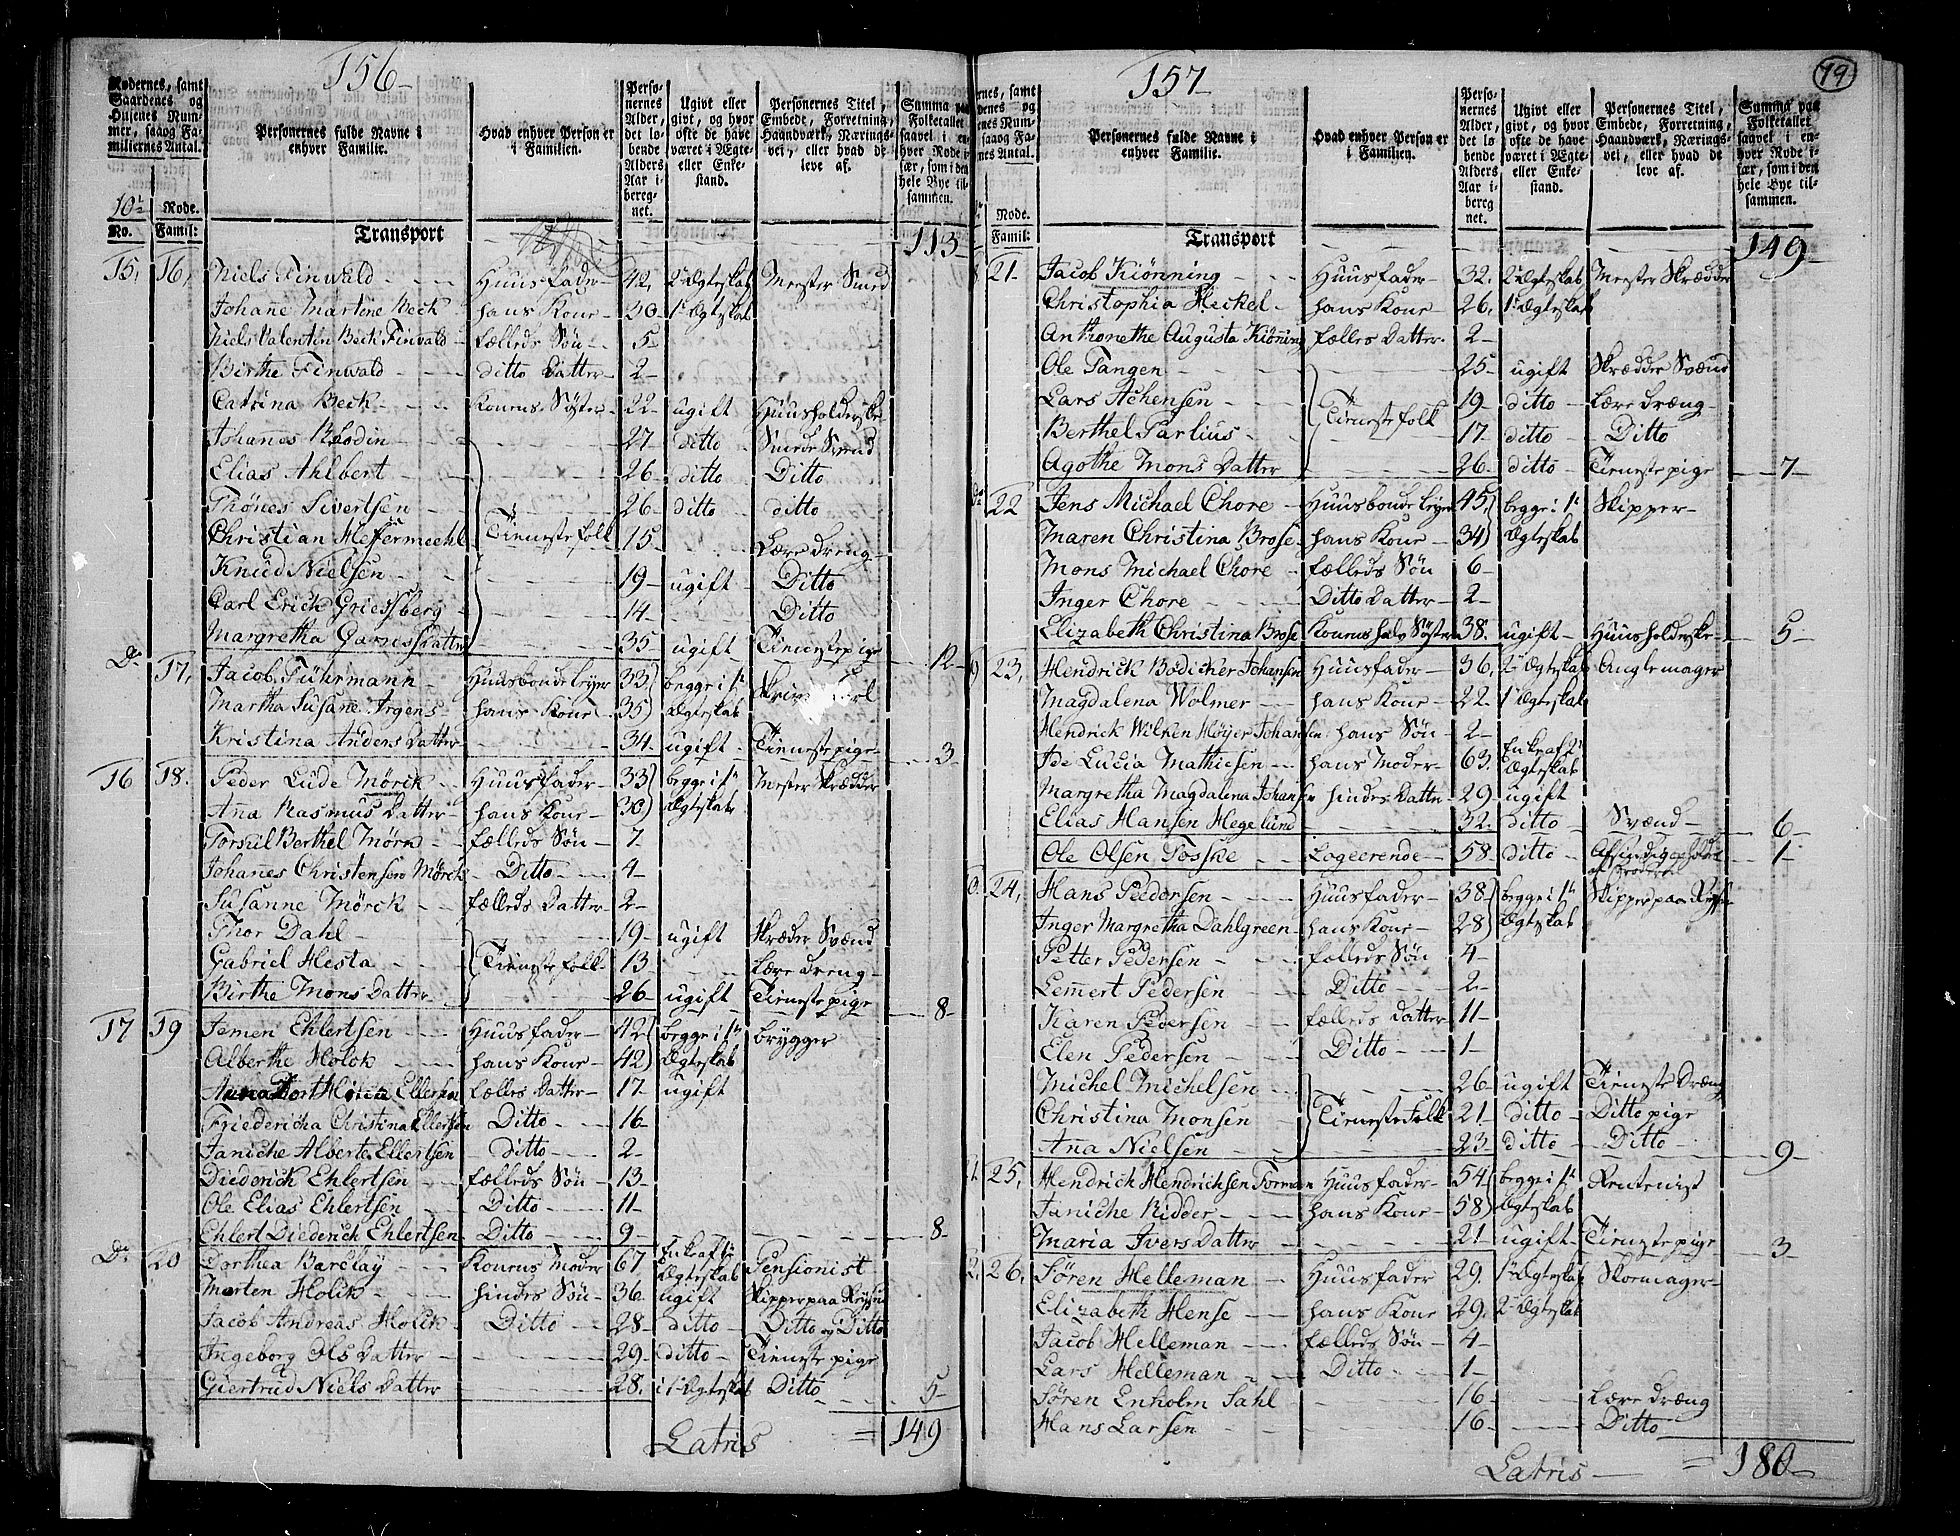 156
Rodernes, samt Gaardenes og Husenes Nummer, saaog Familiernes Antal.
Personernes fulde Navne i enhver Familie.
Hvad enhver Person er i Familien.
Personernes Alder, det løbende Alders Aar iberegnet.
Ugivt eller givt, og hvor ofte de have været i Ægte- eller Enkestand.
Personernes Titel, Embede, Forretning, Haandværk, Næringsvei, eller hvad de leve af.
Summa paa Folketallet saavel i enhver Rode især, som i den hele Bye tilsammen.
10de Rode.
No. Famil:
Transport 113
15, 16, Niels Finwald Huusfader 42, 2de Ægteskab Mester Smed
Johañe Martene Beck hans Kone 30 1te Ægteskab
Niels Valentin Beck Finvald fælleds Søn 5
Birthe Finwald ditto Datter 2
Catrina Beck Konens Søster 22 ugift Huusholderske
Johañes Rodin 27 ditto Smede Svend
Elias Ahlbert 26 ditto Ditto
Thønes Sivertsen 26 ditto ditto
Christian Hefermeehl Tienestefolk 15 Lære dreng
Knud Nielsen 19 ugift Ditto
Carl Erich Griessberg 14 Ditto
Margretha Garnes Datter 35 ugift Tienestepige 12
Do 17, Jacob Führmann Huusbonde leyer 33 begge i 1te
Martha Susane Argens hans Kone 35 Ægteskab
Kristina Anders Datter 34 ugift Tienestepige 3
16 18. Peder Lude Mörck Huusfader 33 begge i 1te Mester Skrædder
Aña Rasmus Datter hans Kone 30 Ægteskab
Torkul Berthel Mörck fælleds Søn 7
Johañes Christensen Mörck Ditto 4
Susanne Mörck fælleds Datter 2
Thor Dahl 19 ugift Skræder Svænd
Gabriel Hesta Tienestefolk 13 Lære dreng
Birthe Mons Datter 26 ugift Tienestepige 8
17 19 Jemen Ehlertsen Huusfader 42 begge i 1te brygger
Alberthe Holck hans Kone 42 Ægteskab
fælles Datter 17 ugift
Friedericha Christina Ellertsen Ditto 16
Janiche Alberte Ellertsen Ditto 2
Diederich Ehlertsen fælleds Søn 13
Ole Elias Ehlertsen Ditto 11
Ehlert Diederich Ehlertsen Ditto 9 8
Do 20 Dorthea Barclay Konens Moder 67 Enke aft 1te Ægteskab Pensionist
Morten Holck hindes Søn 36 ugift Skipper paa Reysen
Jacob Andreas Holck Ditto 28 ditto Ditto og Ditto
Ingeborg Ols Datter 29 ditto Tienestepige
Giertrud Niels Datter 28 i 1te Ægteskab Ditto 5
Latris = 149
157
79
Personernes fulde Navne i enhver Familie.
Hvad enhver Person er i Familien.
Personernes Alder, det løbende Alders Aar iberegnet.
Ugivt eller givt, og hvor ofte de have været i Ægte- eller Enkestand.
Personernes Titel, Embede, Forretning, Haandværk, Næringsvei, eller hvad de leve af.
Summa paa Folketallet saavel i enhver Rode især, som i den hele Bye tilsammen.
Rode.
Famil:
Transport 149
21. Jacob Kiönning Huusfader 32. 2de Ægteskab Mester Skrædder
Christophia Heckel hans Kone 26. 1te Ægteskab
Anthonethe Augusta Kiöning fælles Datter 2
Ole Tangen 25 ugift Skrædder Svænd
Lars Achensen 19 ditto Lære dræng
Berthel Parlius Tienestefolk 17 ditto Ditto
Agothe Mons Datter 26 ditto Tienestepige 7
22 Jens Michael Chore Huusbonde leyer 45, begge i 1te Skipper
Maren Christina Brose hans Kone 34 Ægteskab
Mons Michael Chore fælleds Søn 6
Inger Chore Ditto Datter 2
Elizabeth Christina Brose Konens halv Søster 38. ugift Huusholderske 5
23, Hendrick Bödicher Johansen Huusfader 36, 2de Ægteskab Anglemager
Magdalena Wolmer hans Kone 22 1te Ægteskab
Hendrick Wilken Höyer Johansen hans Søn 2
Ide Lucia Mathiesen hans Moder 63. Enke aft 1te Ægteskab
Margretha Magdalena Johansen hindes Datter 29 ugift
Elias Hansen Hegelund 32. ditto Svænd 6
Ole Olsen Foske Logeerende 58 ditto 1
24, Hans Pedersen Huusfader 38 begge i 1te Skipper paa Reysen
Inger Margretha Dahlgreen hans Kone 28 Ægteskab
Petter Pedersen fælleds Søn 4
Lemert Pedersen Ditto 2
Karen Pedersen fælleds Datter 11
Elen Pedersen Ditto 1
Michel Michelsen 26 ugift Tieneste Dræng
Christina Monsen Tienestefolk 21. ditto Ditto pige
Aña Nielsen 23 ditto Ditto 9
25, Hendrich Hendrichsen Forman Huusfader 54 begge i 1te Rentenist
Janiche Ridder hans Kone 58 Ægteskab
Maria Ivers Datter 21 ugift Tienstepige 3
26, Søren Helleman Huusfader 29. 1te Ægteskab Skomager
Elizabeth Hense hans Kone 29. 2de Ægteskab
Jacob Helleman fælleds Søn 4
Lars Helleman Ditto 1
Søren Enholm Dahl 16 Lære dræng
Hans Larsen 16 Ditto
Latris = 180